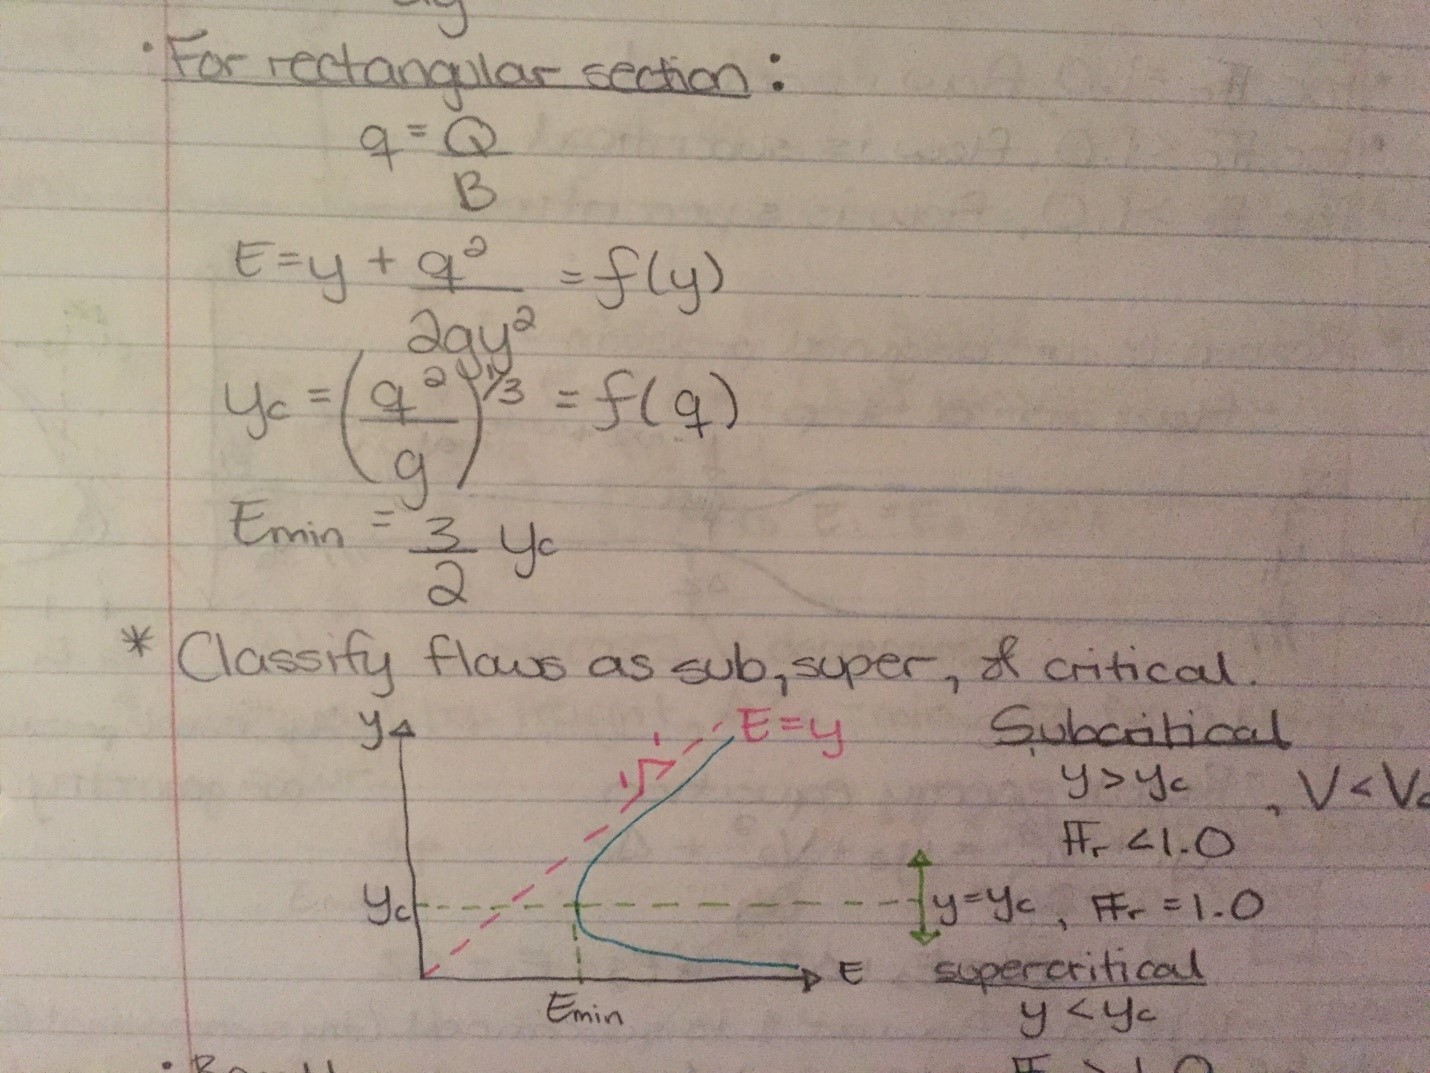 · For rectangular section:
q = Q/B
E = y + q²/2gy² = f(y)
yc = (q²/g)^1/3 = f(q)
Emin = 3/2 yc
* Classify flows as sub, super, & critical.
y
E=y
1
1
Subcritical
y > yc, V < Vc
Fr < 1.0
yc
y = yc, Fr = 1.0
E
Emin
supercritical
y < yc
Fr > 1.0